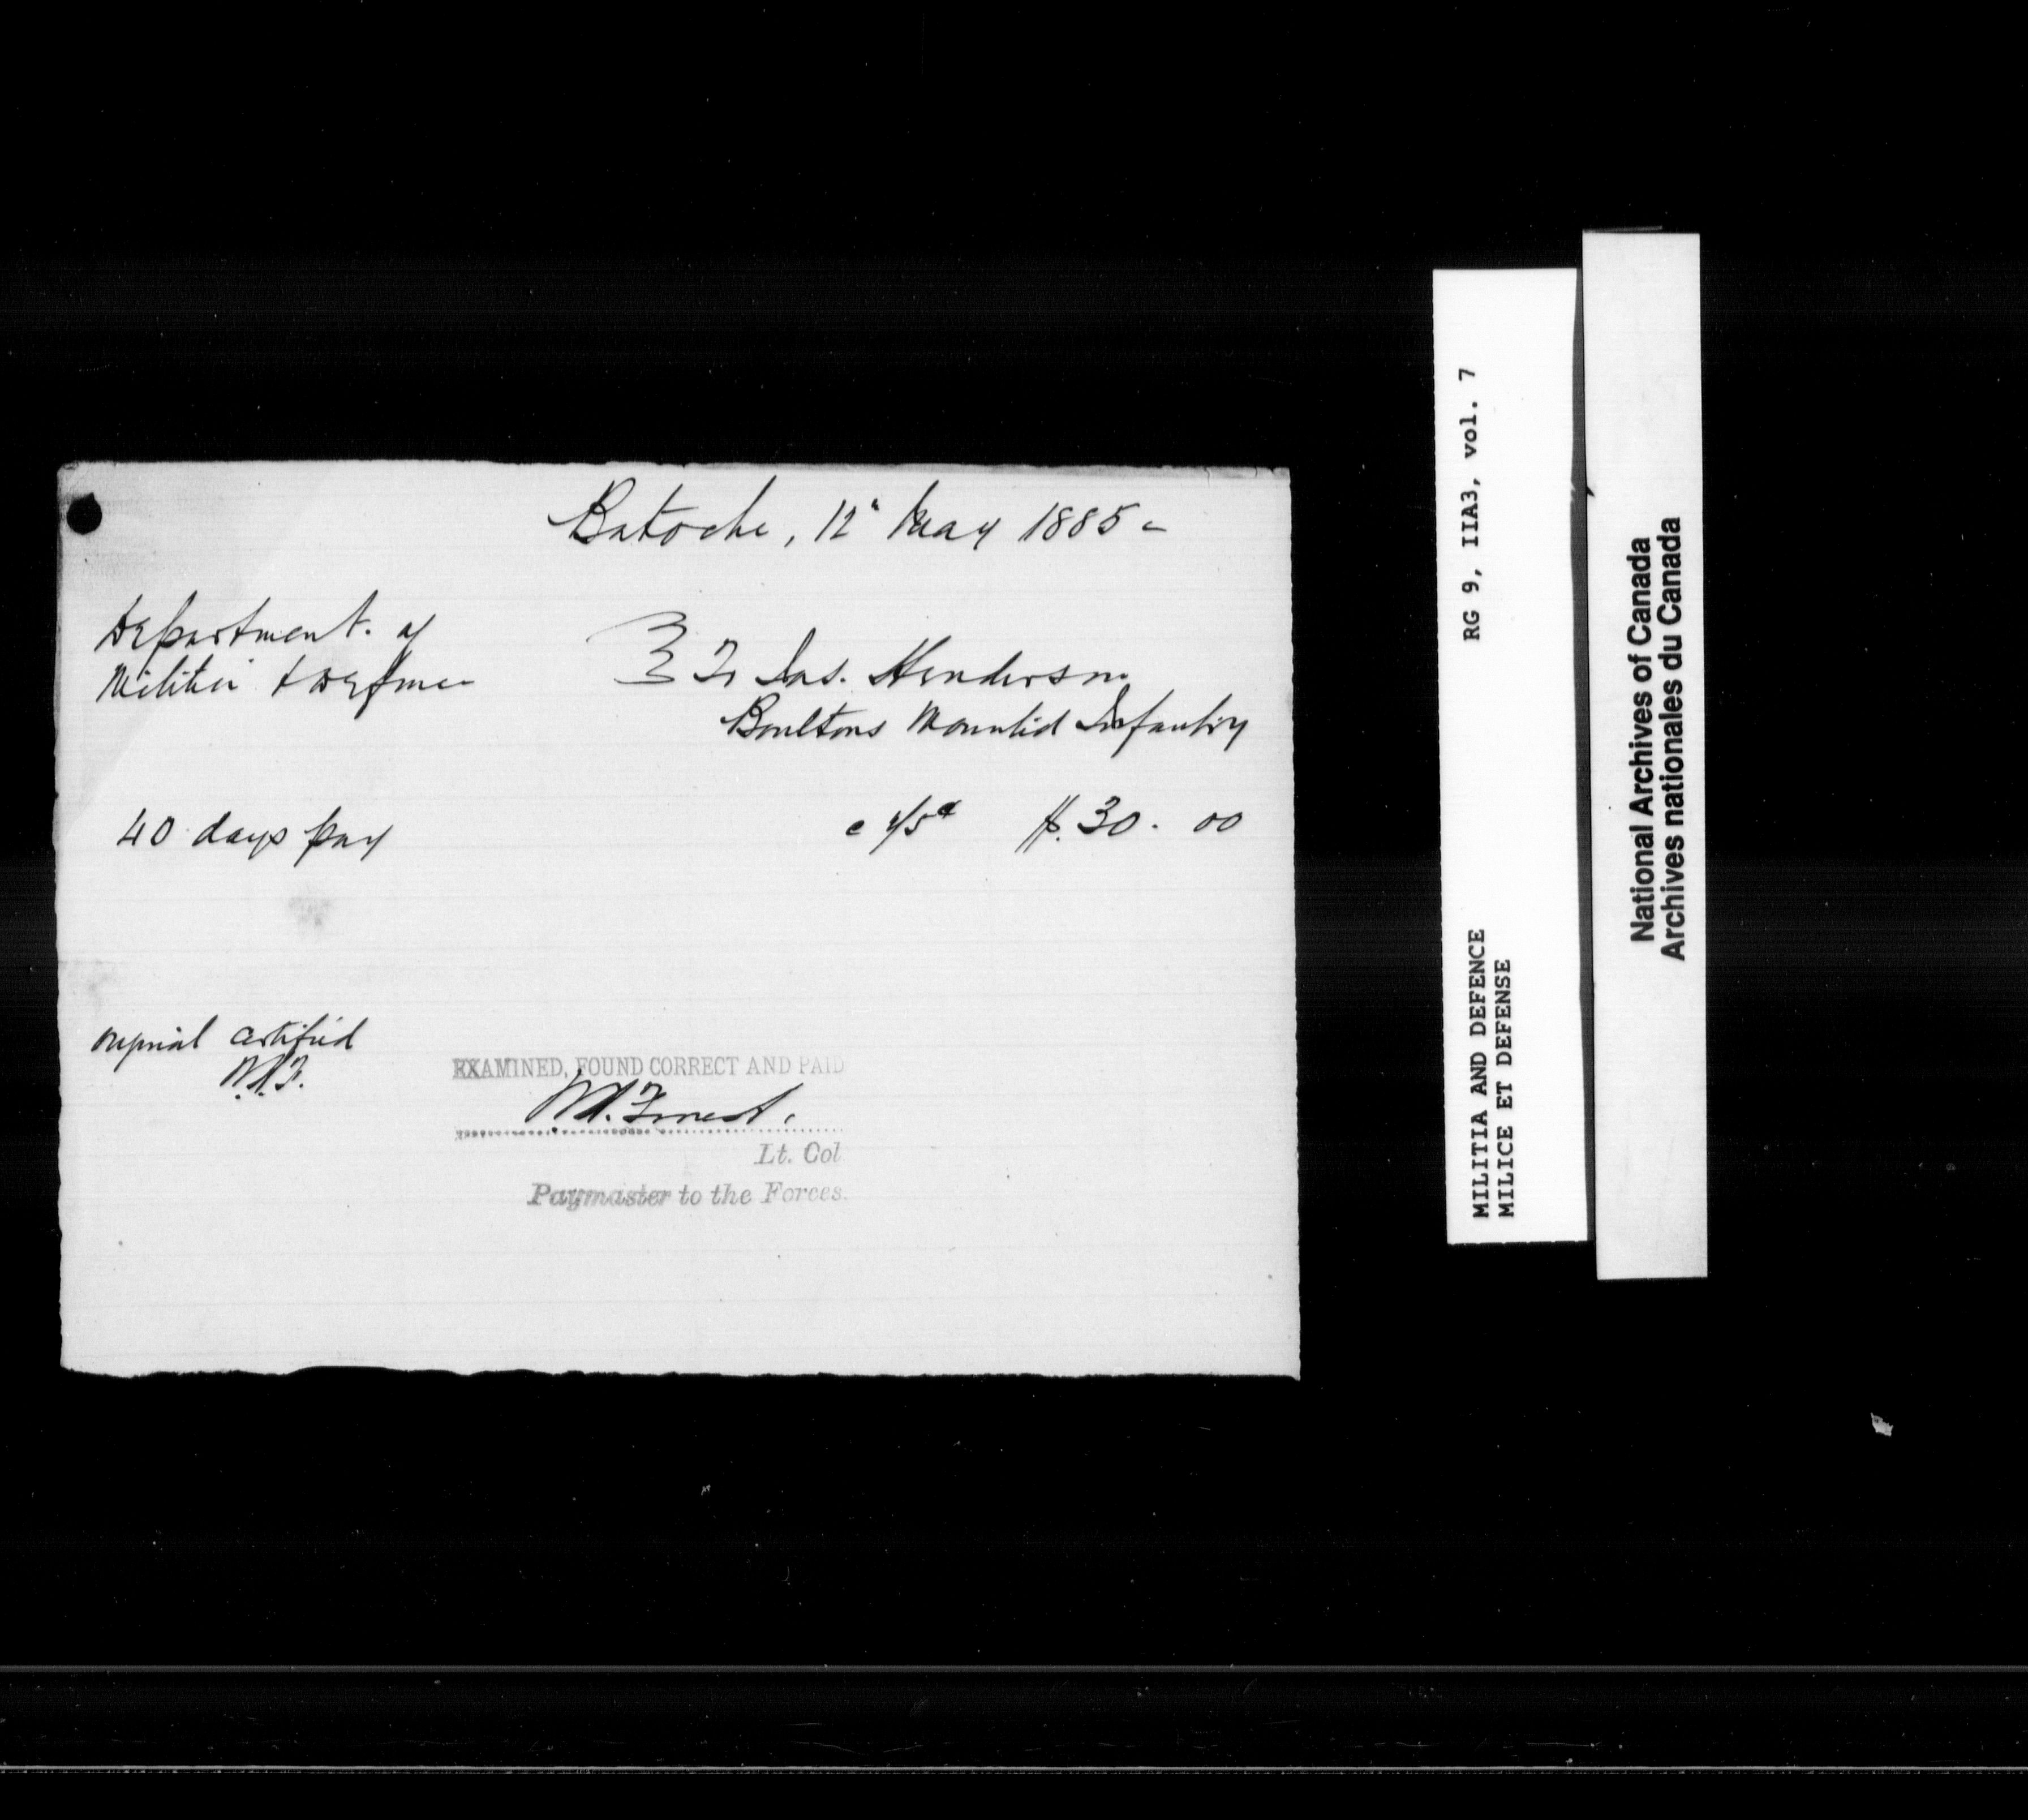 Batoche, 12" May 1885 -
Department. of
Militia & Defence
To Jas. Henderson
Boultons Mounted Infantry
40 days pay
75¢ $. 30. 00
original certified
EXAMINED, FOUND CORRECT AND PAID
Forrest.
Lt. Col.
Paymaster to the Forces.
RG 9, IIA3, vol. 7
MILITIA AND DEFENCE
MILICE ET DEFENSE
National Archives of Canada
Archives nationales du Canada